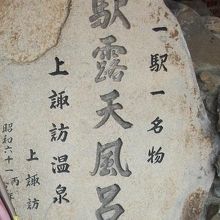 一駅一名物
駅露天風呂
上諏訪温泉
上諏訪
昭和六十一丙